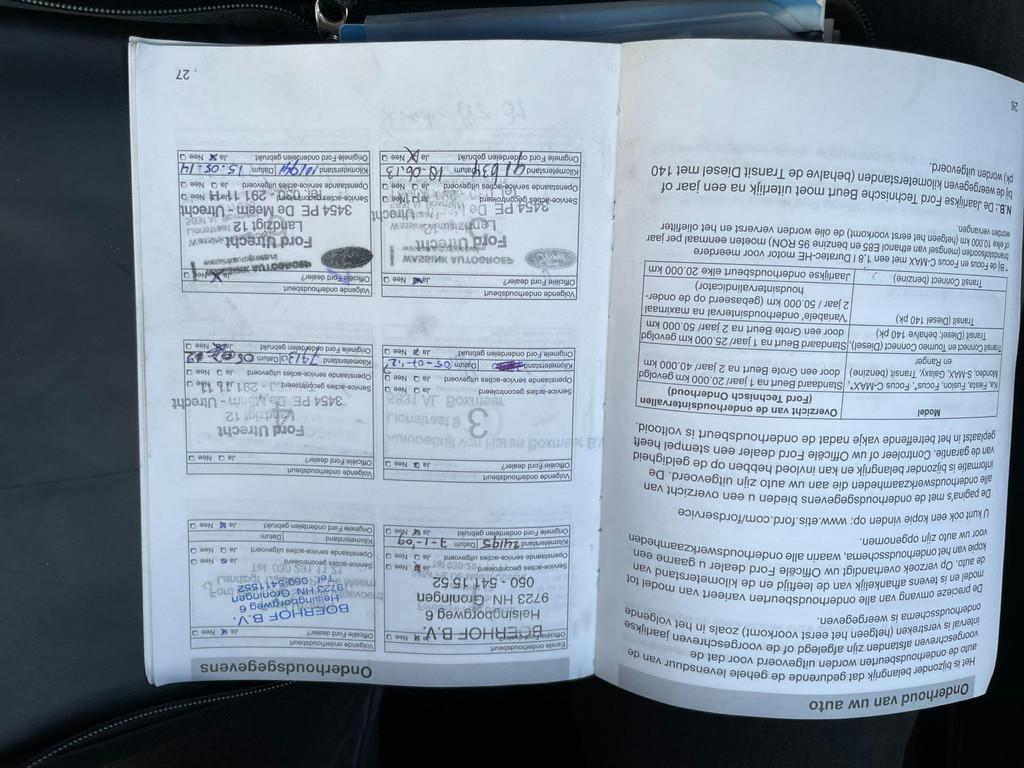 Onderhoud van uw auto
Het is bijzonder belangrijk dat gedurende de gehele levensduur van de
auto de onderhoudsbeurten worden uitgevoerd voor dat de
voorgeschreven afstanden zijn afgelegd of de voorgeschreven jaarlijkse
interval is verstreken (hetgeen het eerst voorkomt) zoals in het volgende
onderhoudsschema is weergegeven.
De precieze omvang van alle onderhoudsbeurten varieert van model tot
model en is tevens afhankelijk van de leeftijd en de kilometerstand van
de auto. Op verzoek overhandigt uw Officiële Ford dealer u gaarne een
kopie van het onderhoudsschema, waarin alle onderhoudswerkzaamheden
voor uw auto zijn opgenomen.
U kunt ook een kopie vinden op: www.etis.ford.com/fordservice
De pagina's met de onderhoudsgegevens bieden u een overzicht van
alle onderhoudswerkzaamheden die aan uw auto zijn uitgevoerd. De
informatie is bijzonder belangrijk en kan invloed hebben op de geldigheid
van de garantie. Controleer of uw Officiële Ford dealer een stempel heeft
geplaatst in het betreffende vakje nadat de onderhoudsbeurt is voltooid.
Model
Overzicht van de onderhoudsintervallen
(Ford Technisch Onderhoud)
Ka, Fiesta, Fusion, Focus*, Focus C-MAX*,
Mondeo, S-MAX, Galaxy, Transit (benzine)
en Ranger
Standaard Beurt na 1 jaar/ 20.000 km gevolgd
door een Grote Beurt na 2 jaar/ 40.000 km
Transit Connect en Tourneo Connect (Diesel),
Transit (Diesel, behalve 140 pk)
Standaard Beurt na 1 jaar/ 25.000 km gevolgd
door een Grote Beurt na 2 jaar/ 50.000 km
Transit (Diesel 140 pk)
'Variabele' onderhoudsinterval na maximaal
2 jaar / 50.000 km (gebaseerd op de onder-
houdsindicator)
Transit Connect (benzine)
Jaarlijkse onderhoudsbeurt elke 20.000 km
*Bij de Focus en Focus C-MAX met een 1,8 l Duratec-HE motor voor meerdere
brandstofsoorten (mengsel van ethanol E85 en benzine 95 RON) moeten eenmaal per jaar
of elke 10.000 km (hetgeen het eerst voorkomt) de olie worden ververst en het oliefilter
worden vervangen.
N.B.: De Jaarlijkse Ford Technische Beurt moet uiterlijk na een jaar of
bij de weergegeven kilometerstanden (behalve de Transit Diesel met 140
pk) worden uitgevoerd.
26
Onderhoudsgegevens
Eerste onderhoudsbeurt
Officiële Ford dealer? Ja Nee
BOERHOF B.V.
Helsingborgweg 6
9723 HN Groningen
050 - 541.15.52
Service-acties gecontroleerd Ja Nee
Openstaande service-acties uitgevoerd Ja Nee
Kilometerstand 24195 Datum 7-1-09
Originele Ford onderdelen gebruikt Ja Nee
Volgende onderhoudsbeurt
Officiële Ford dealer? Ja Nee
BOERHOF B.V.
Helsingborgweg 6
9723 HN Groningen
Tel. 050-5411552
Service-acties gecontroleerd Ja Nee
Openstaande service-acties uitgevoerd Ja Nee
Kilometerstand Datum
Originele Ford onderdelen gebruikt Ja Nee
Volgende onderhoudsbeurt
Officiële Ford dealer? Ja Nee
3
Lionstraat 9
5831 AL Boxmeer
Service-acties gecontroleerd Ja Nee
Openstaande service-acties uitgevoerd Ja Nee
Kilometerstand Datum 05-07-12
Originele Ford onderdelen gebruikt Ja Nee
Volgende onderhoudsbeurt
Officiële Ford dealer? Ja Nee
Ford Utrecht
Landzigt 12
3454 PE De Meern - Utrecht
Service-acties gecontroleerd
Openstaande service-acties uitgevoerd Ja Nee
Kilometerstand Datum
Originele Ford onderdelen gebruikt Ja Nee
Volgende onderhoudsbeurt
Officiële Ford dealer? Ja Nee
WASSINK AUTOGROEP
Ford Utrecht
3454 PE De Meern Utrecht
Service-acties gecontroleerd
Openstaande service-acties uitgevoerd Ja Nee
Kilometerstand 91634 Datum 10.06.13
Originele Ford onderdelen gebruikt Ja Nee
Volgende onderhoudsbeurt
Officiële Ford dealer? Ja Nee
WASSINK AUTOGROEP
Ford Utrecht
Landzigt 12
3454 PE De Meern - Utrecht
Tel. 030 - 291 11 11
Service-acties gecontroleerd Nee
Openstaande service-acties uitgevoerd Ja Nee
Kilometerstand Datum 15-05-14
Originele Ford onderdelen gebruikt Ja Nee
27